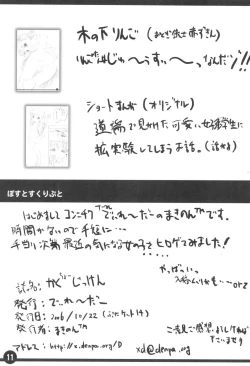 木の下りんご (おとぎ銃士赤ずきん)
りんごたんはじゅ〜うすぃ〜っなんだゾ!!
ショートまんが (オリジナル)
道端で見かけた可愛い女子学生に
拡張実験してしまうお話。(話かよ)
ぽすとすくりぷと
はじめまして コンニチワ でぃれ〜だ〜のまきのんTMです。
時間がないので手短に…
手当り次第最近の気になる女の子をヒロゲてみました!
やっばい…
orz
誌名: かくちょーじっけん
発行: でぃれ〜だ〜
発行日: 2006/10/22 (ぷにケット14)
発行者: まきのんTM
ご意見ご感想、よろしければ
アドレス: http://s.denpa.org/D
xd@denpa.org
11